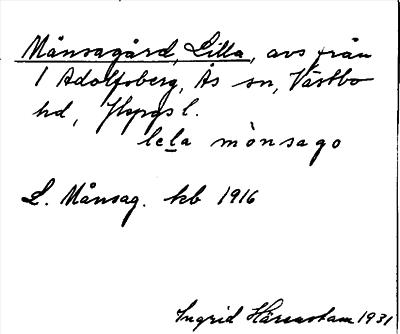 Månsagård, Lilla, avs från
1 Adolfsberg, Ås sn, Västbo
hd, Jkpgs l.
lela mònsago
L. Månsag. kb 1916
Ingrid Härenstam 1931